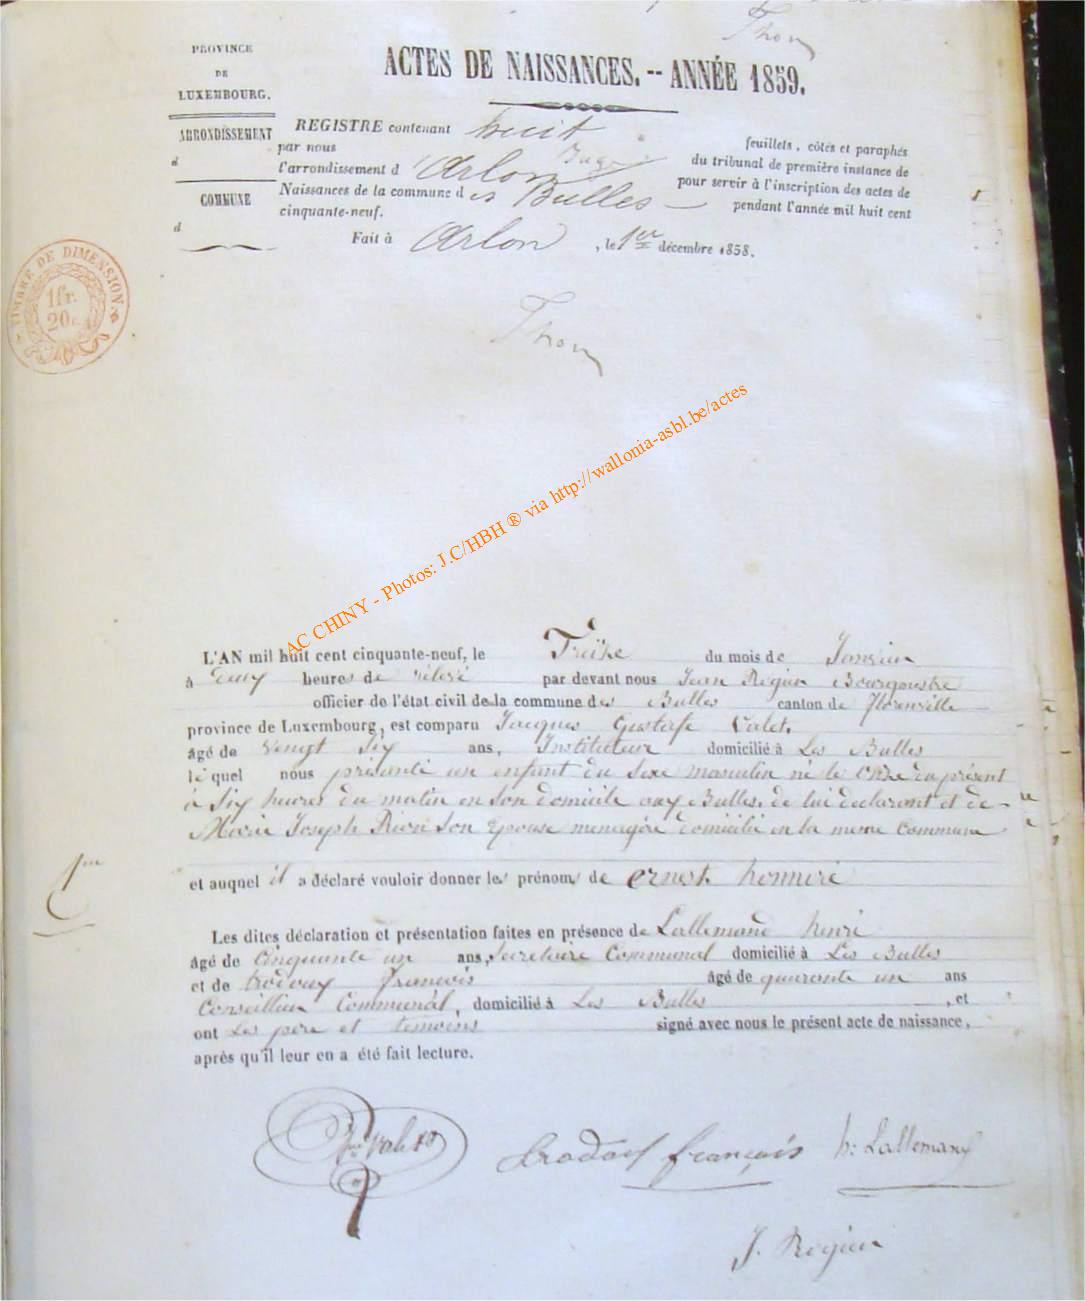 Thon
PROVINCE
DE
LUXEMBOURG.
ACTES DE NAISSANCES. -- ANNÉE 1859.
ARRONDISSEMENT
d
COMMUNE
d
REGISTRE contenant huit feuillets, côtés et paraphés
par nous Juge du tribunal de première instance de
l'arrondissement d'Arlon pour servir à l'inscription des actes de
Naissances de la commune des Bulles pendant l'année mil huit cent
cinquante-neuf.
Fait à Arlon, le 1er décembre 1858.
TIMBRE DE DIMENSION
1 fr.
20 c.
Thon
AC CHINY - Photos: J.C/HBH ® via http://wallonia-asbl.be/actes
L'AN mil huit cent cinquante-neuf, le Treize du mois de Janvier
à deux heures de rélevé par devant nous Jean Régien Bourgmestre
officier de l'état civil de la commune des Bulles canton de Florenville
province de Luxembourg, est comparu Jacques Gustafe Valet,
âgé de vengt Six ans, Instituteur domicilié à Les Bulles
le quel nous présenté un enfant du Sexe masculin né le onze du présent
à Six heures du matin en Son domicile aux Bulles, de lui declarant et de
Marie Joseph Pierson Epouse menagère domicilié en la meme Commune
1er
et auquel il a déclaré vouloir donner les prénoms de ernest honnoré
Les dites déclaration et présentation faites en présence de Lallemand henri
âgé de Cinquante un ans, Secretaire Communal domicilié à Les Bulles
et de trodoux francois âgé de quarante un ans
Conseillier Communal, domicilié à Les Bulles, et
ont Les père et temoins signé avec nous le présent acte de naissance,
après qu'il leur en a été fait lecture.
Valet
trodoux françois
h: Lallemand
J. Régien